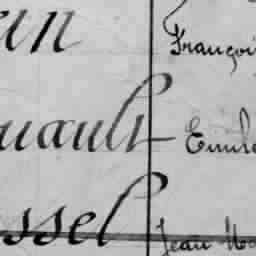 an Françoi
uault Emile
ssel Jean Ma